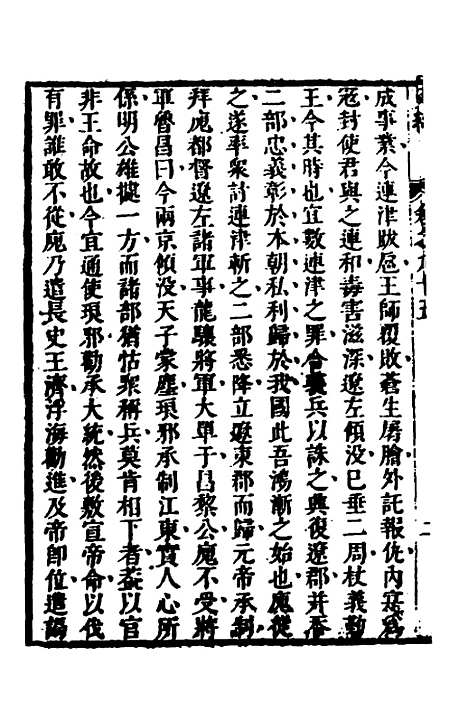 成事業今連津跋扈王師覆敗蒼生屠膾外託報仇內寔為
寇封使君與之連和毒害滋深遼左傾没已垂二周杖義勤
王今其時也宜數連津之罪合義兵以誅之興復遼郡并吞
二部忠義彰於本朝私利歸於我國此吾鴻漸之始也廆從
之遂率衆討連津斬之二部悉降立遼東郡而歸元帝承制
拜廆都督遼左諸軍事龍驤將軍大單于昌黎公廆不受將
軍魯昌曰今兩京傾没天子蒙塵琅邪承制江東實人心所
係明公雄據一方而諸部猶怙衆稱兵莫肯相下者葢以官
非王命故也今宜通使琅邪勸承大統然後敷宣帝命以伐
有罪誰敢不從廆乃遣長史王濟浮海勸進及帝即位遣謁